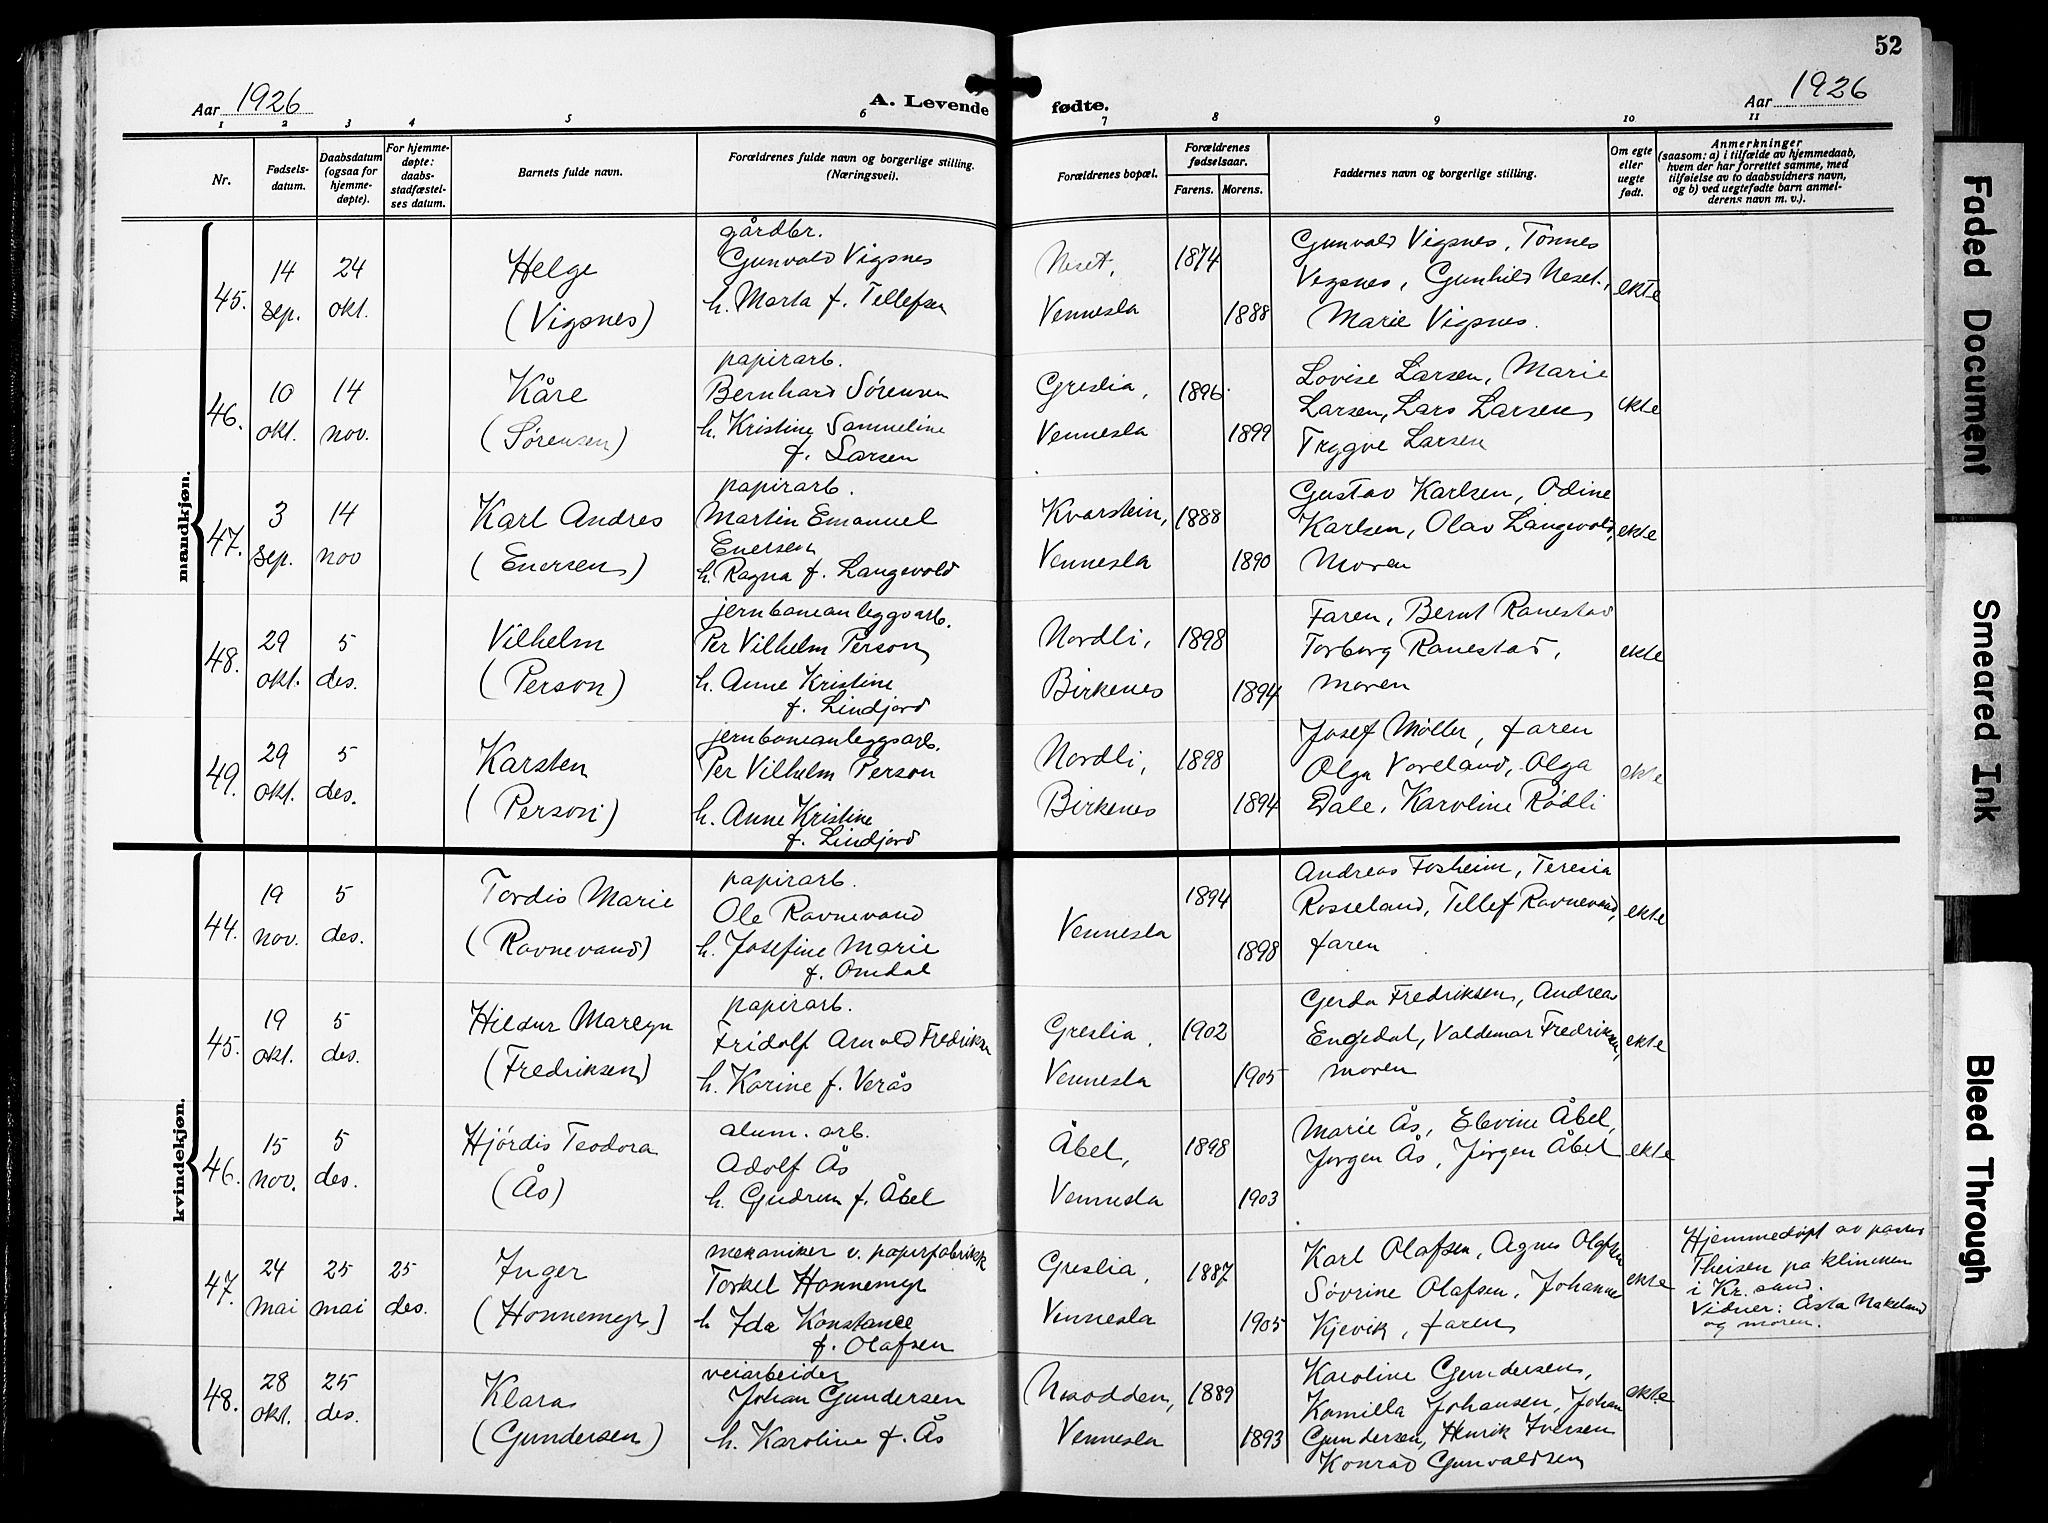 52
Aar 1926
A. Levende fødte.
Aar 1926
1 2 3 4 5 6 7 8 9 10 11
Nr.
Fødsels-
datum.
Daabsdatum
(ogsaa for
hjemme-
døpte).
For hjemme-
døpte:
daabs-
stadfæstel-
ses datum.
Barnets fulde navn.
Forældrenes fulde navn og borgerlige stilling.
(Næringsvei).
Forældrenes bopæl.
Forældrenes
fødselsaar.
Farens. Morens.
Faddernes navn og borgerlige stilling.
Om egte
eller
uegte
født.
Anmerkninger
(saasom: a) i tilfælde av hjemmedaab,
hvem der har forrettet samme, med
tilføielse av to daabsvidners navn,
og b) ved uegtefødte barn anmel-
derens navn m. v.).
mandkjøn.
45.
14
sep.
24
okt.
Helge
(Vigsnes)
gårdbr.
Gunvald Vigsnes
h. Marta f. Tellefsen
Neset,
Vennesla
1874
1888
Gunvald Vigsnes, Tønnes
Vigsnes, Gunhild Neset,
Marie Vigsnes.
ekte
46.
10
okt.
14
nov.
Kåre
(Sørensen)
papirarb.
Bernhard Sørensen
h. Kristine Samueline
f. Larsen
Greslia,
Vennesla
1896
1899
Lovise Larsen, Marie
Larsen, Lars Larsen
Trygve Larsen
ekte
47.
3
sep.
14
nov
Karl Andres
(Enersen)
papirarb.
Martin Emanuel
Enersen
h. Ragna f. Langevold
Kvarstein,
Vennesla
1888
1890
Gustav Karlsen, Odine
Karlsen, Olav Langevold,
Moren
ekte
48.
29
okt.
5
des.
Vilhelm
(Person)
jernbaneanleggsarb.
Per Vilhelm Person
h. Anne Kristine
f. Lindjord
Nordli,
Birkenes
1898
1894
Faren, Bernt Ranestad
Torborg Ranestad,
moren
ekte
49.
29
okt.
5
des.
Karsten
(Person)
jernbaneanleggsarb.
Per Vilhelm Person
h. Anne Kristine
f. Lindjord
Nordli,
Birkenes
1898
1894
Josef Møller, faren
Olga Voreland, Olga
Dale, Karoline Rødli
ekte
kvindekjøn.
44.
19
nov.
5
des.
Tordis Marie
(Ravnevand)
papirarb.
Ole Ravnevand
h. Josefine Marie
f. Omdal
Vennesla
1894
1898
Andreas Fosheim, Teresia
Rosseland, Tellef Ravnevand,
faren
ekte
45.
19
okt.
5
des.
Hildur Marlyn
(Fredriksen)
papirarb.
Fridolf Arnold Fredriksen
h. Karine f. Verås
Greslia,
Vennesla
1902
1905
Gerda Fredriksen, Andreas
Engedal, Valdemar Fredriksen,
moren
ekte
46.
15
nov.
5
des.
Hjördis Teodora
(Ås)
alum. arb.
Adolf Ås
h. Gudrun f. Åbel
Åbel,
Vennesla
1898
1903
Marie Ås, Elevine Åbel,
Jørgen Ås, Jørgen Åbel
ekte
47.
24
mai
25
mai
25
des.
Inger
(Honnemyr)
mekaniker v. papirfabrikk
Torkel Honnemyr
h Ida Konstance
f. Olafsen
Greslia,
Vennesla
1887
1905
Karl Olafsen, Agnes Olafsen
Søvrine Olafsen, Johanne
Kjevik, faren
ekte
Hjemmedøpt av pastor
Theisen på klinikken
i Kr.sand.
Vidner: Åsta Nakeland
og moren.
48.
28
okt.
25
des.
Klara
(Gundersen)
veiarbeider
Johan Gundersen
h. Karoline f. Ås
Moodden,
Vennesla
1889
1893
Karoline Gundersen,
Kamilla Johansen, Johan
Gundersen, Henrik Iversen
Konrad Gunvaldsen
ekte
Faded Document
Smeared Ink
Bleed Through